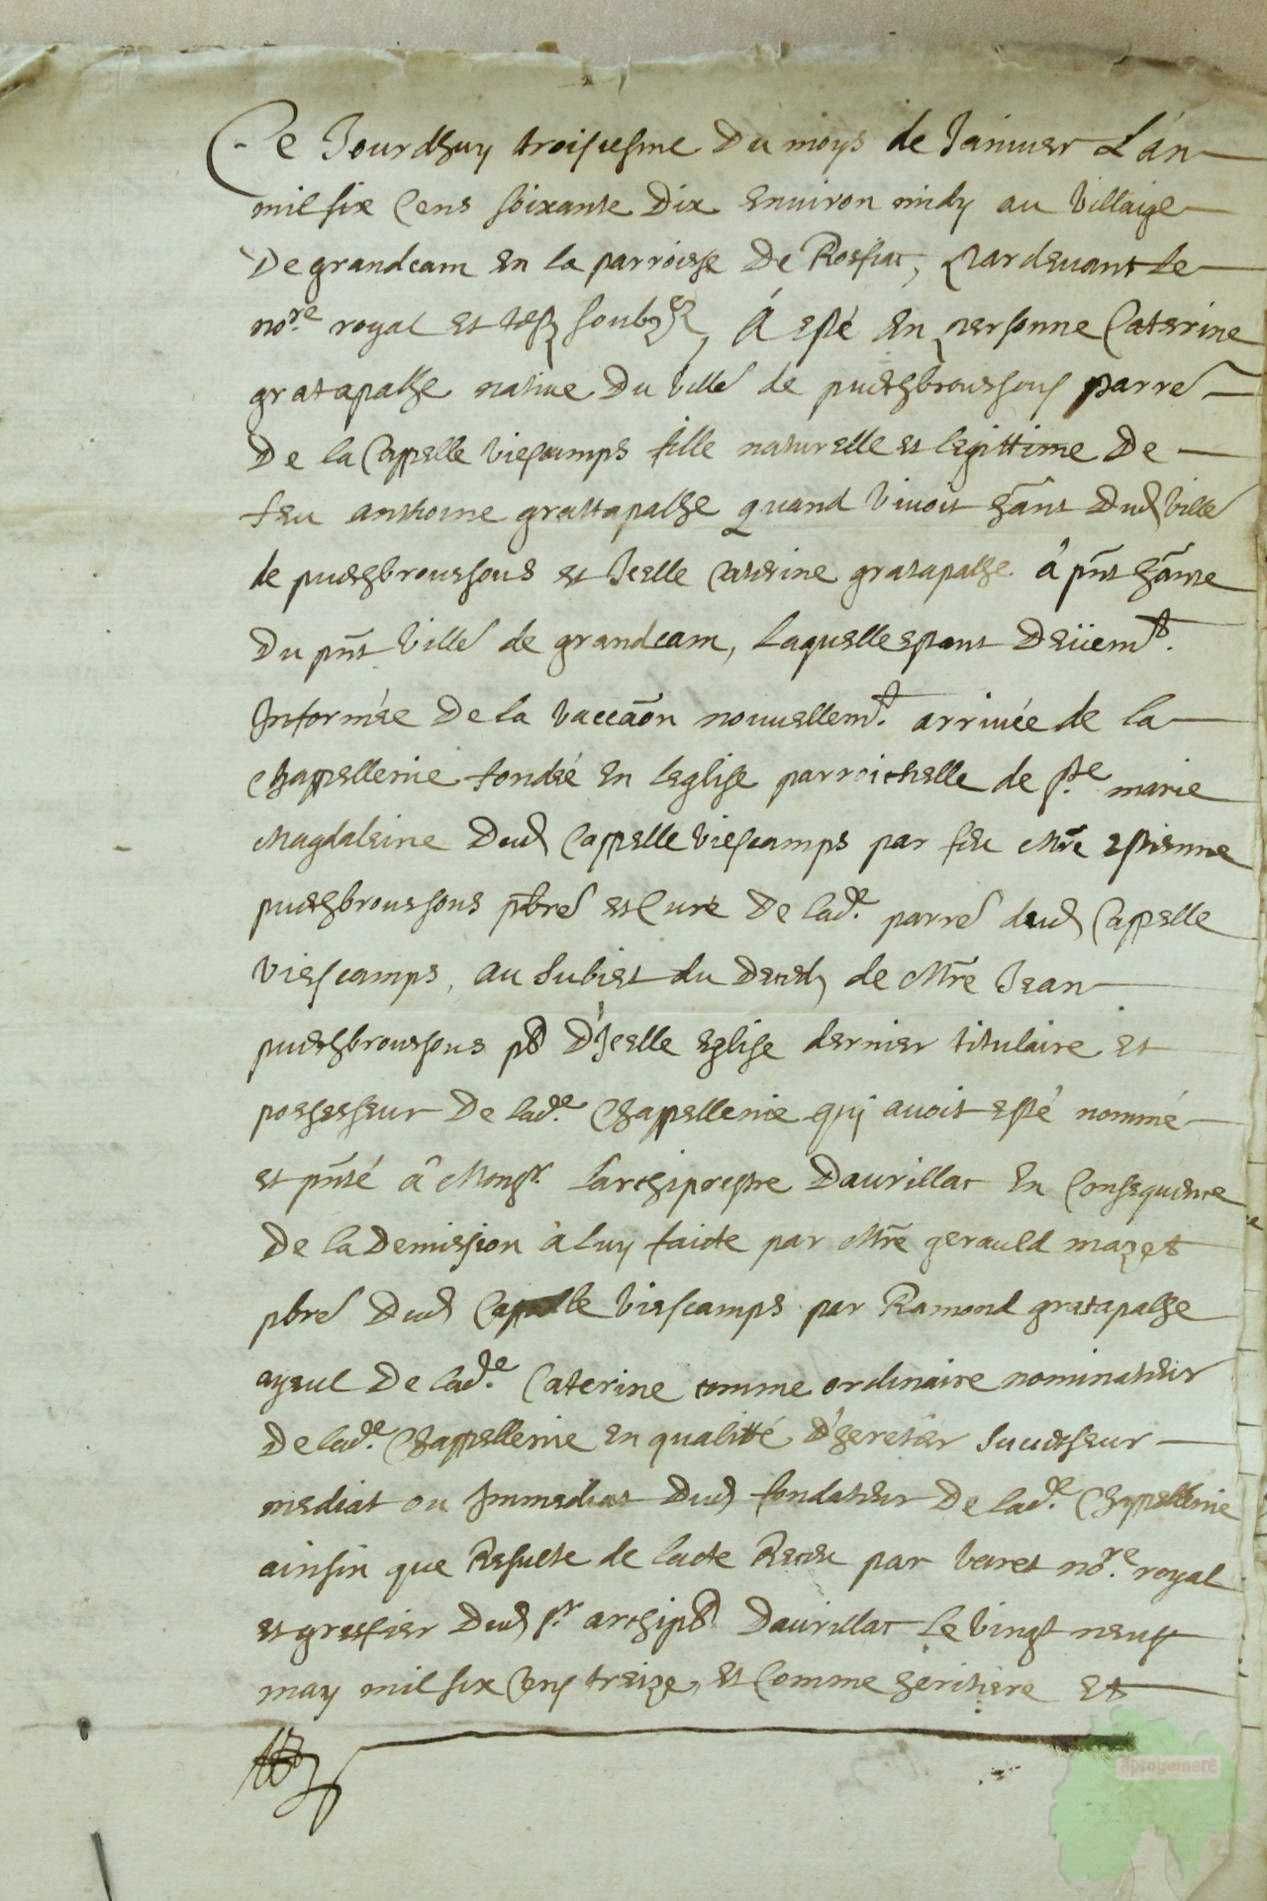 Ce Jourdhuy troisiesme Du moys de Januier L'an
mil six Cens soixante Dix enuiron midy au Villaige
De grandcam en la parroisse De Rossiac, pardeuant Le
nore royal et tesz soubznez, A esté en personne Caterine
gratapalhe natiue Du villé de puechbroussous parré
De la Cappelle viescamps fille naturelle et legittime De
feu anthoine grattapalhe quand viuoit hãnt Dud villé
de puechbroussous et Icelle Caterine gratapalhe â pñt hãnte
Du pñt villé de grandcam, Laquelle estant Deüemt.
Informée De la vaccaõn nouuellemt. arriuée de la
Chappellenie fondée en Leglise parroichelle de Ste marie
Magdaleine Dud Cappelle viescamps par feu Mre estienne
puechbroussous pbré et Curé De lade. parré dud Cappelle
viescamps, au subiet du Deced de Mre Jean
puechbroussous pb D'Icelle eglise dernier titulaire et
possesseur De lade. Chappellenie quj auoit esté nommé
et pñté â Monsr. Larchiprestre Daurillac en Consequence
De la Demission â luy faicte par Mre gerauld mazet
pbré Dud Cappelle viescamps par Ramond gratapalhe
ayeul De lade. Caterine comme ordinaire nominateur
De lade. Chappellenie en qualitté D'heretier successeur
mediat ou Immediat Dud fondateur De lade. Chappellenie
ainsin que Resulte de lacte Receu par veiret nore. royal
et greffier Dud sr archipb Daurillac Le vingt neuf
may mil six Cens treize, et Comme heritiere et
aprogemere